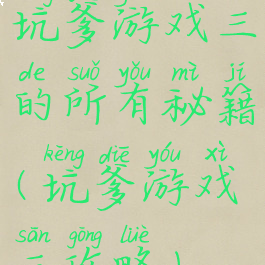 坑爹游戏三
de suǒ yǒu mì jí
的所有秘籍
kēng diē yóu xì
(坑爹游戏
sān gōng lüè
三攻略)